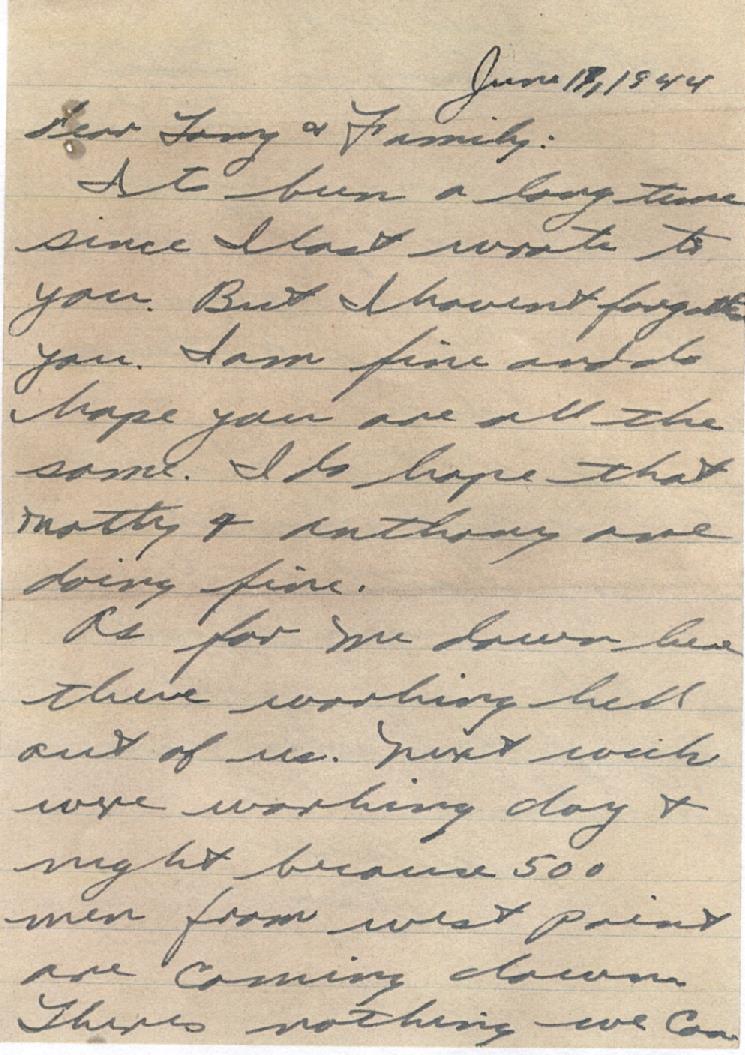 June 17, 1944
Dear Tony & Family:
Its been a long time
since I last wrote to
you. But I havent forgotten
you. I am fine and do
hope you are all the
same. I do hope that
Matty & Anthony are
doing fine.
As for me down here
there working hell
out of us. Next week
were working day &
night because 500
men from west point
are coming down.
Theres nothing we can